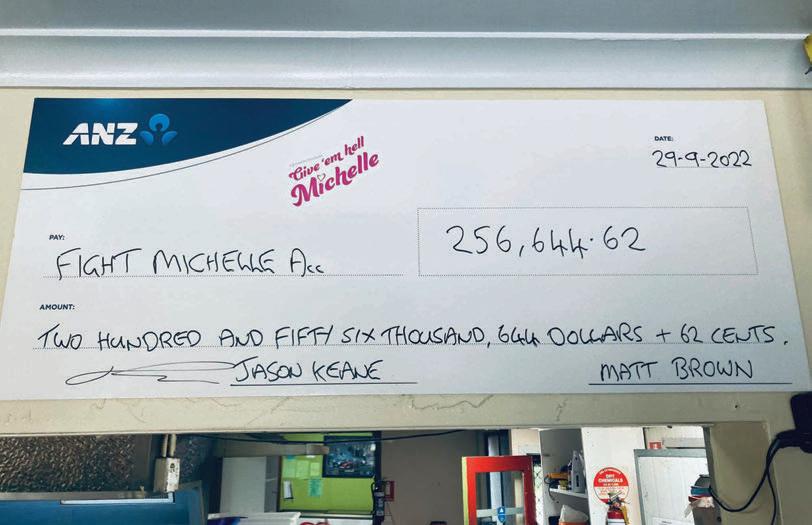 ANZ
Give 'em hell
Michelle
DATE:
29-9-2022
PAY:
FIGHT MICHELLE Acc
256,644.62
AMOUNT:
TWO HUNDRED AND FIFTY SIX THOUSAND, 644 DOLLARS + 62 CENTS.
JASON KEANE
MATT BROWN
DRY
CHEMICALS